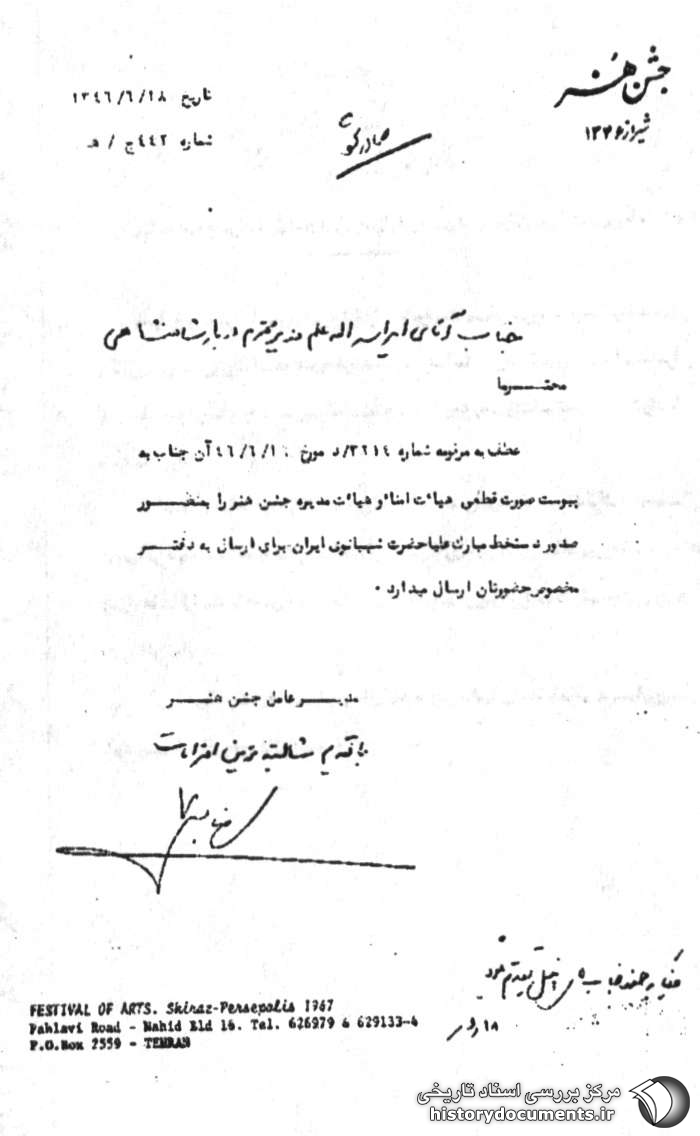 جشن هنر
شیراز ۱۳۴۶
تاریخ ۱۳۴۶/۶/۱۸
شماره ۴۴۲ج / هـ
جناب آقای امیراسدالله علم وزیر محترم دربار شاهنشاهی
محتــرما
عطف به مرقومه شماره ۳۲۱۴/د مورخ ۴۶/۶/۱۶ آن جناب به
پیوست صورت قطعی هیات امنا و هیات مدیره جشن هنر را بمنظــور
صدور دستخط مبارک علیاحضرت شهبانوی ایران برای ارسال به دفتــر
مخصوص حضورتان ارسال میدارد .
مدیــر عامل جشن هنــر
با تقدیم شایسته ترین احترامات
۱۸
FESTIVAL OF ARTS. Shiraz-Persepolis 1967
Pahlavi Road - Nahid Bld 16. Tel. 626979 & 629133-4
P.O.Box 2559 - TEHRAN
مرکز بررسی اسناد تاریخی
historydocuments.ir